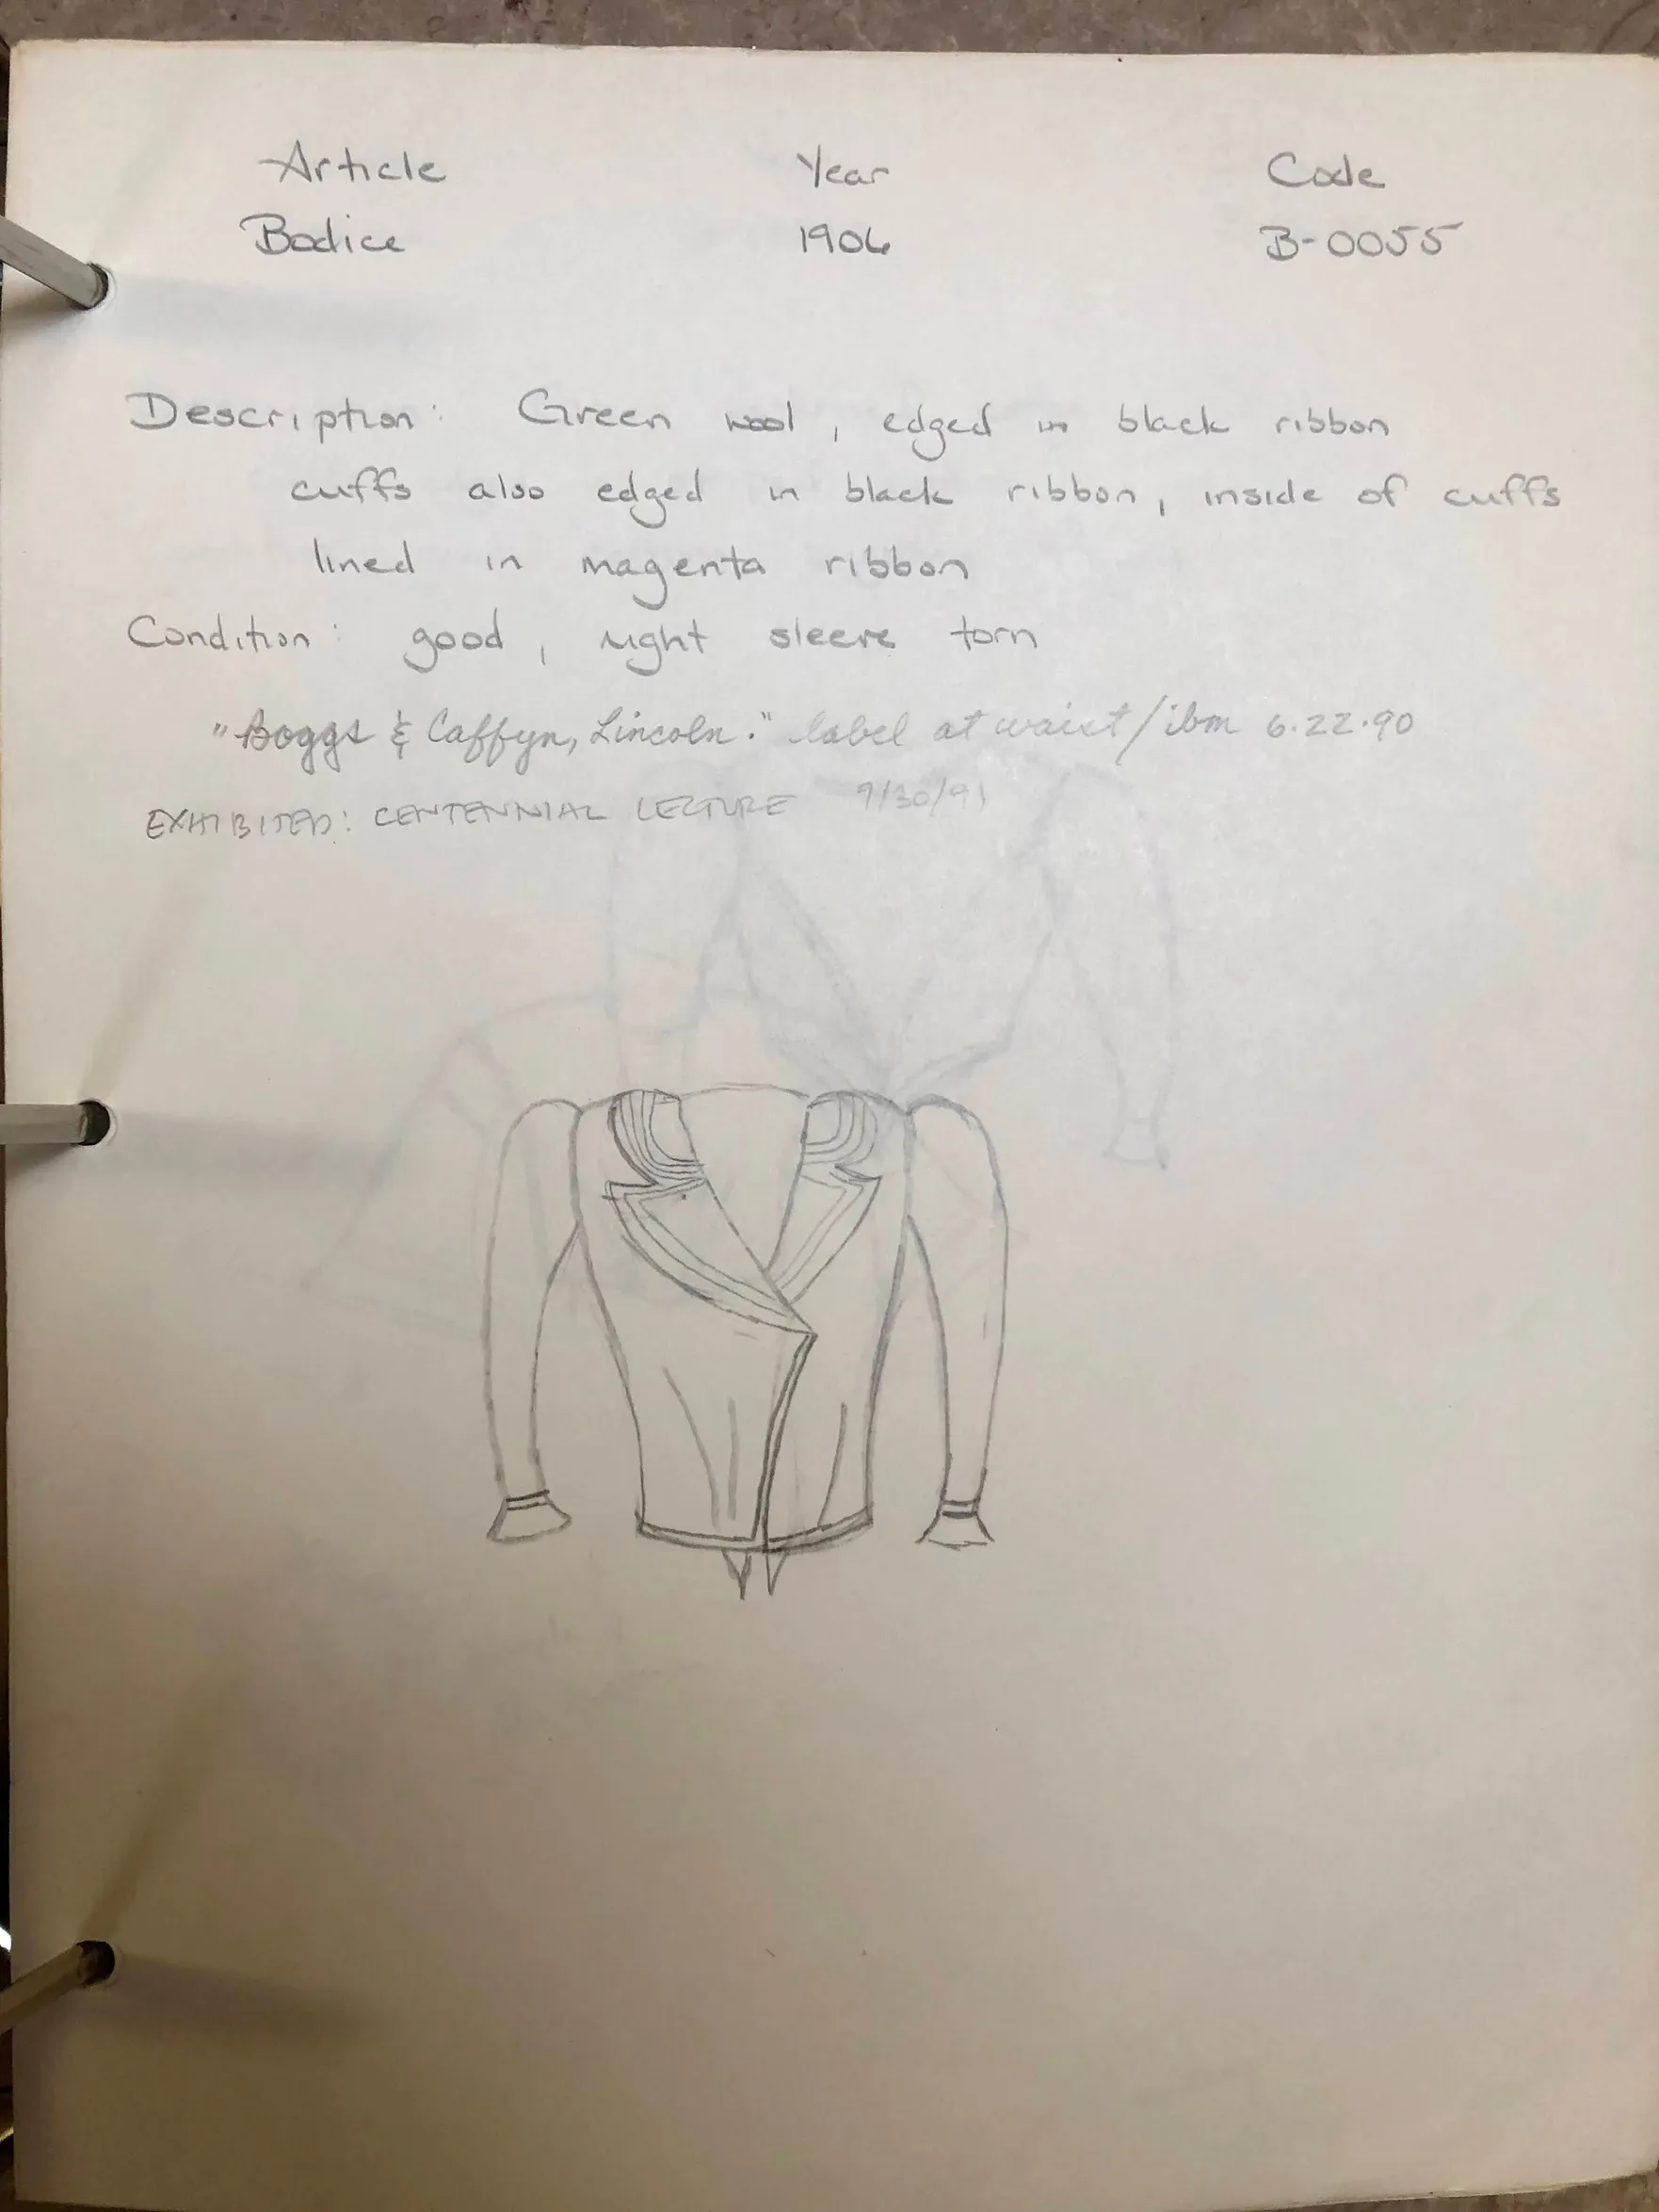 Article Year Code
Bodice 1906 B-0055
Description: Green wool, edged in black ribbon
cuffs also edged in black ribbon, inside of cuffs
lined in magenta ribbon
Condition: good, right sleeve torn
"Boggs & Caffyn, Lincoln." label at waist/ibm 6.22.90
EXHIBITED: CENTENNIAL LECTURE 9/30/91